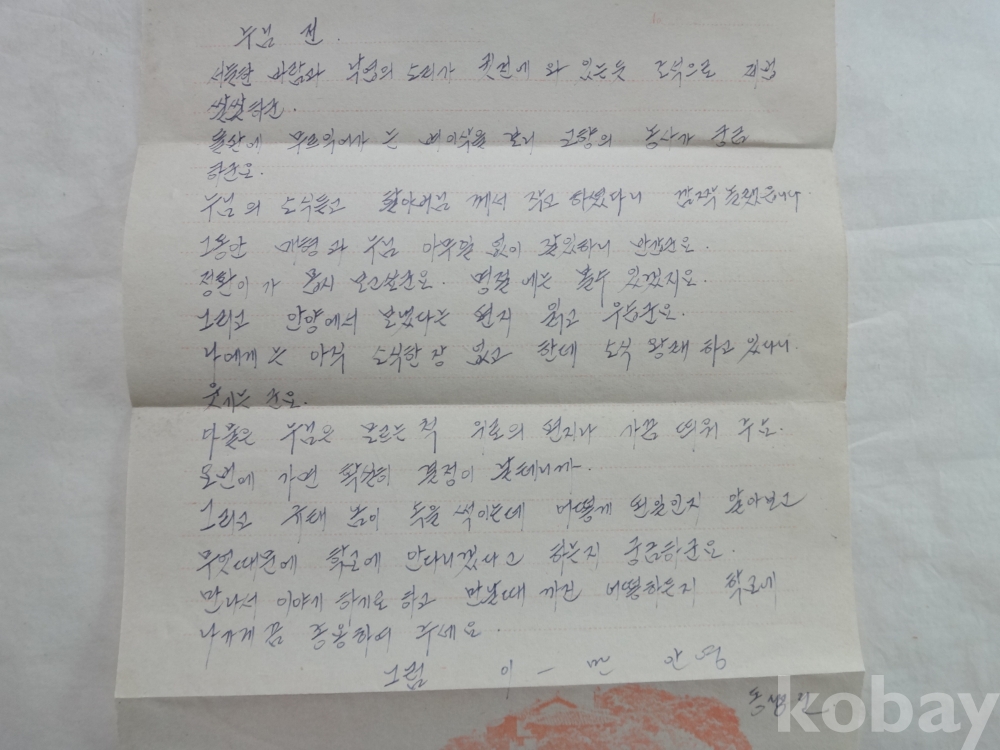 누님 전.
서늘한 바람과 낙엽의 소리가 귓전에 와 있는듯 조석으로 제법
쌀쌀하군.
들산에 무르익어가 는 벼이삭을 보니 고향의 농사가 궁금
하군요.
누님의 소식듣고 할아버님 께서 작고 하셨다니 깜짝 놀랬읍니다
그동안 매형과 누님 아무일 없이 잘있하니 반갑군요.
정환이가 몹시 보고싶군요. 명절에는 볼수 있겠지요.
그리고 안양에서 보냈다는 편지 읽고 우습군요.
나에게는 아직 소식한장 없고 한데 소식 왕래 하고 있다니.
웃기는군요.
마음은 누님은 모르는 척 위로의 편지나 가끔 띄워 주님.
요번에 가면 확실히 결정이 날테니까.
그리고 놈이 속을 썩이는데 어떻게 된일인지 알아보고
무엇때문에 학교에 안다니겠다고 하는지 궁금하군요.
만나서 이야기 하기로 하고 만날때 까진 어떻하든지 학교에
나가게끔 종용하여 주세요.
그럼 이 - 만 안녕
동생
kobay